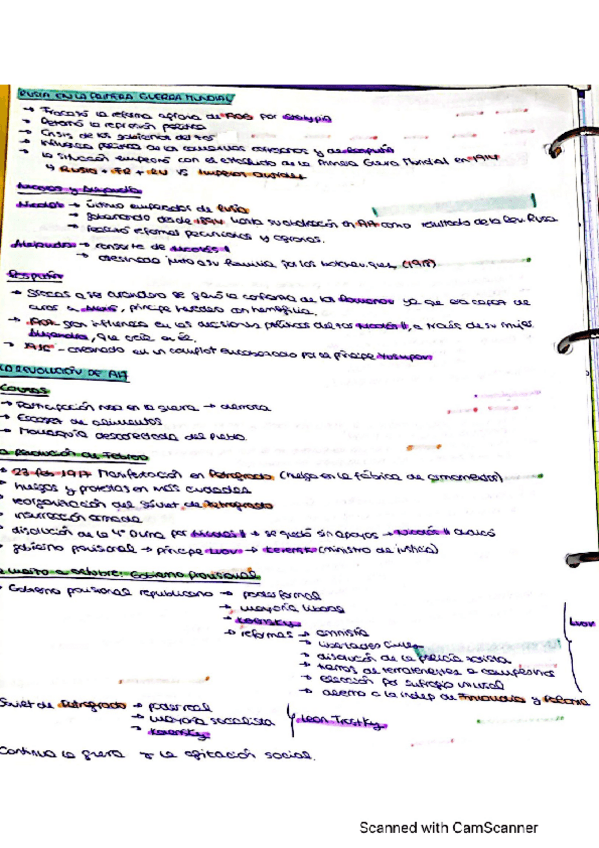 RUSIA EN LA PRIMERA GUERRA MUNDIAL
→ Fracasó la reforma agraria de 1906 por Stolypin
→ Retomó la represión política
→ Crisis de los gobiernos del zar
→ Influencia política de los consejeros cercanos y de Rasputín
→ la situación empeoró con el estallido de la Primera Guerra Mundial en 1914
↳ RUSIA + FR + RU VS Imperios Centrales
Nicolás y Alejandra
Nicolás → último emperador de Rusia
→ gobernando desde 1894 hasta su abdicación en 1917 como resultado de la Rev. Rusa
→ reformas y agrarias.
Alejandra → consorte de Nicolás II
→ asesinada junto a su familia por los bolcheviques (1918)
Rasputín
→ Gracias a ser curandero se ganó la confianza de los Romanov ya que era capaz de
curar a Alexis, príncipe heredero con hemofilia.
→ gran influencia en las decisiones políticas del zar Nicolás II, a través de su mujer
Alejandra, que creía en él.
→ asesinado en un complot encabezado por el príncipe Yusupov
LA REVOLUCIÓN DE 1917
Causas
→ Participación rusa en la guerra → derrota
→ Escasez de alimentos
→ Monarquía desacreditada del pueblo.
La Revolución de Febrero
→ 23 feb 1917 Manifestación en Petrogrado (huelga en la fábrica de armamento)
→ huelgas y protestas en más ciudades
→ reorganización del Sóviet de Petrogrado
→ insurrección armada
→ disolución de la 4ª Duma por Nicolás II → se quedó sin apoyos → Nicolás II abdicó
→ gobierno provisional → príncipe Lvov → Kerensky (ministro de justicia)
De marzo a octubre: Gobierno provisional
→ Gobierno provisional republicano → poder formal
→ mayoría liberal
→ Kerensky
→ reformas → amnistía
→ libertades civiles
→ disolución de la policía zarista
→ tierras de terratenientes a campesinos
→ elección por sufragio universal
→ abierto a la indep de Finlandia y Polonia
Lvov
Sóviet de Petrogrado → poder real
→ mayoría socialista
→ Kerensky
Leon Trostky
Continua la guerra y la agitación social.
Scanned with CamScanner